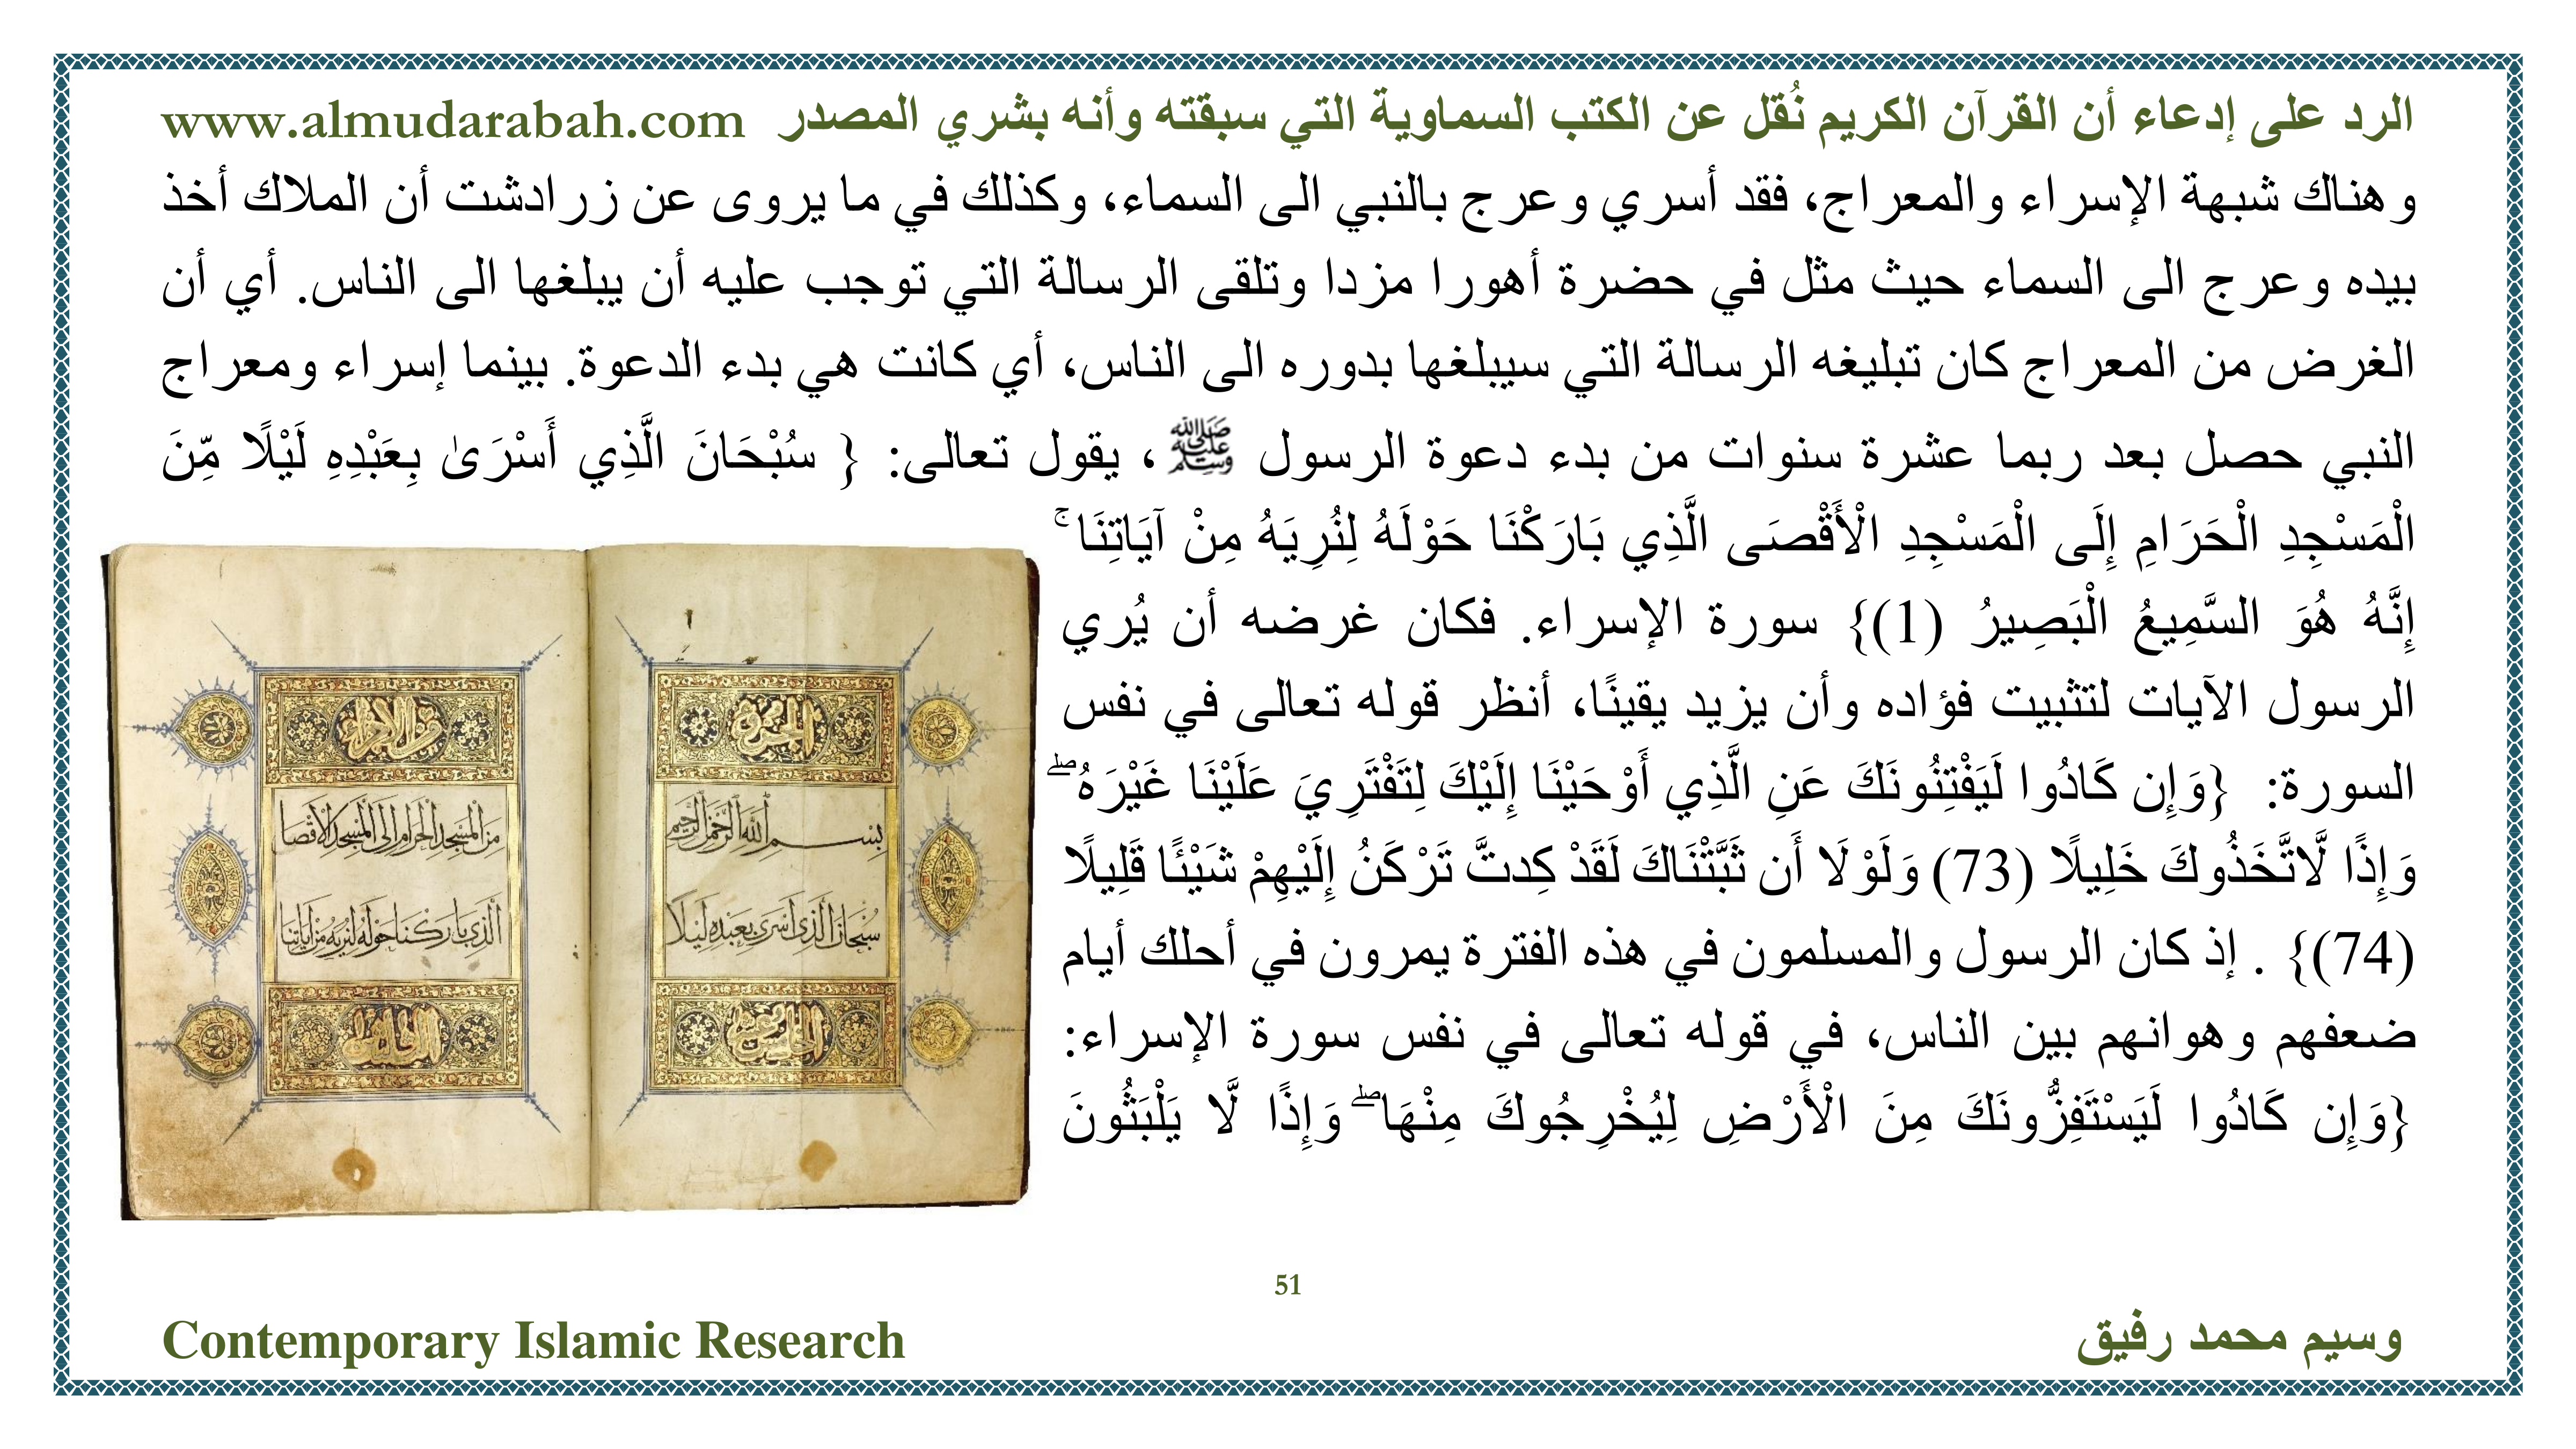 الرد على إدعاء أن القرآن الكريم نُقل عن الكتب السماوية التي سبقته وأنه بشري المصدر www.almudarabah.com
وهناك شبهة الإسراء والمعراج، فقد أسري وعرج بالنبي الى السماء، وكذلك في ما يروى عن زرادشت أن الملاك أخذ
بيده وعرج الى السماء حيث مثل في حضرة أهورا مزدا وتلقى الرسالة التي توجب عليه أن يبلغها الى الناس. أي أن
الغرض من المعراج كان تبليغه الرسالة التي سيبلغها بدوره الى الناس، أي كانت هي بدء الدعوة. بينما إسراء ومعراج
النبي حصل بعد ربما عشرة سنوات من بدء دعوة الرسول ﷺ، يقول تعالى: { سُبْحَانَ الَّذِي أَسْرَىٰ بِعَبْدِهِ لَيْلًا مِّنَ
الْمَسْجِدِ الْحَرَامِ إِلَى الْمَسْجِدِ الْأَقْصَى الَّذِي بَارَكْنَا حَوْلَهُ لِنُرِيَهُ مِنْ آيَاتِنَا ۚ
إِنَّهُ هُوَ السَّمِيعُ الْبَصِيرُ (1)} سورة الإسراء. فكان غرضه أن يُري
الرسول الآيات لتثبيت فؤاده وأن يزيد يقينًا، أنظر قوله تعالى في نفس
السورة: {وَإِن كَادُوا لَيَفْتِنُونَكَ عَنِ الَّذِي أَوْحَيْنَا إِلَيْكَ لِتَفْتَرِيَ عَلَيْنَا غَيْرَهُ ۖ
وَإِذًا لَّاتَّخَذُوكَ خَلِيلًا (73) وَلَوْلَا أَن ثَبَّتْنَاكَ لَقَدْ كِدتَّ تَرْكَنُ إِلَيْهِمْ شَيْئًا قَلِيلًا
(74)} . إذ كان الرسول والمسلمون في هذه الفترة يمرون في أحلك أيام
ضعفهم وهوانهم بين الناس، في قوله تعالى في نفس سورة الإسراء:
{وَإِن كَادُوا لَيَسْتَفِزُّونَكَ مِنَ الْأَرْضِ لِيُخْرِجُوكَ مِنْهَا ۖ وَإِذًا لَّا يَلْبَثُونَ
بسم الله الرحمن الرحيم
سبحان الذى اسرى بعبده ليلا
من المسجد الحرام الى المسجد الاقصا
الذى باركنا حوله لنريه من اياتنا
51
وسيم محمد رفيق
Contemporary Islamic Research